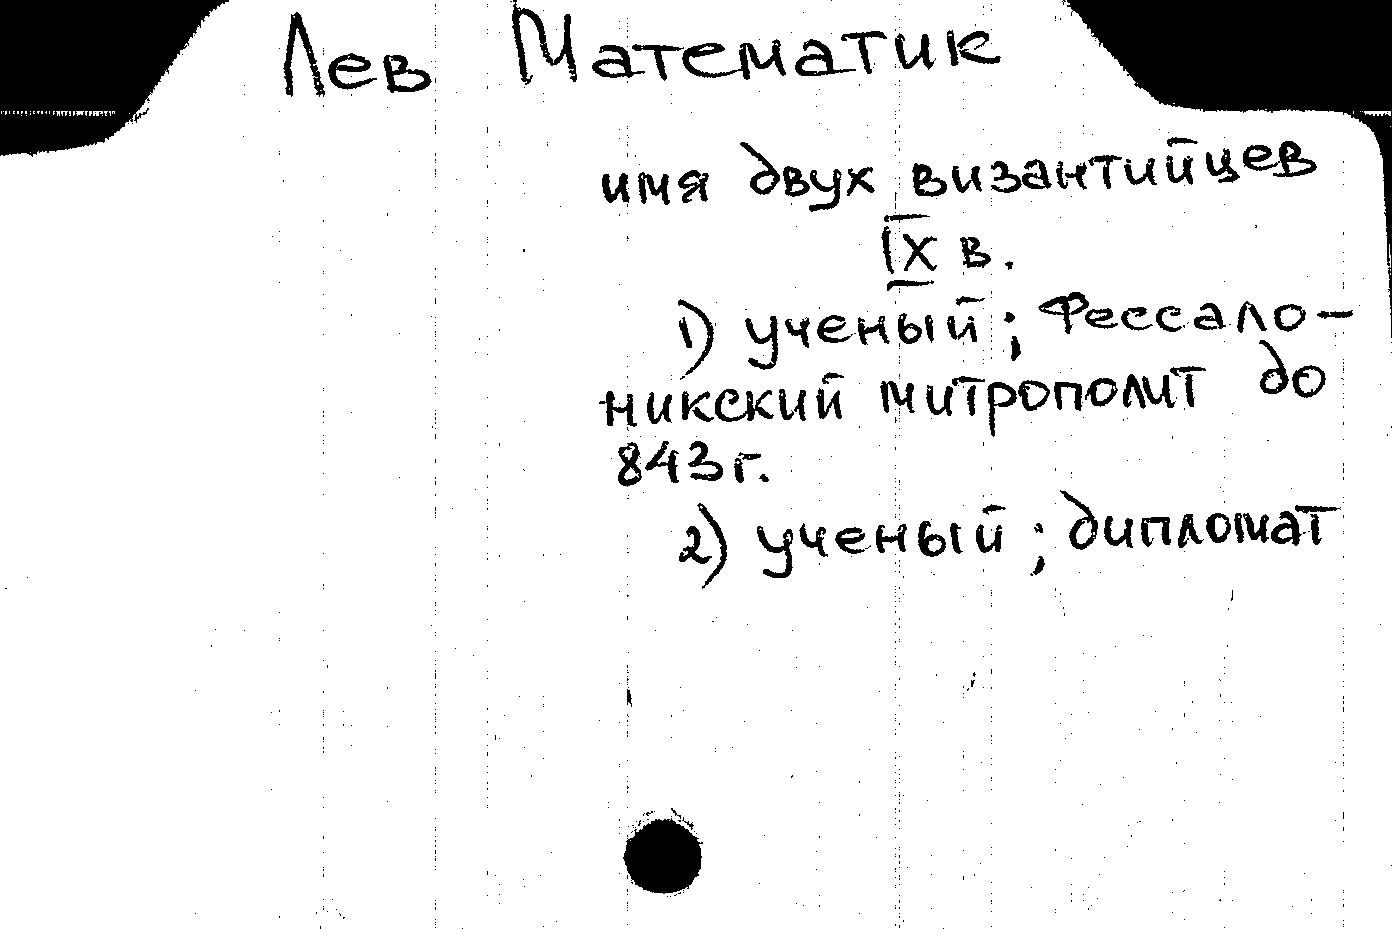 Лев Математик
имя двух византийцев
IX в.
1) ученый; Фессало-
никский митрополит до
843 г.
2) ученый; дипломат